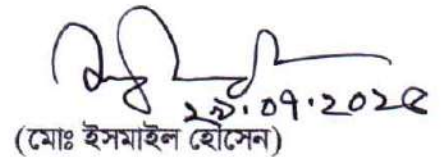 ২৯.০৭.২০২৫
(মোঃ ইসমাইল হোসেন)